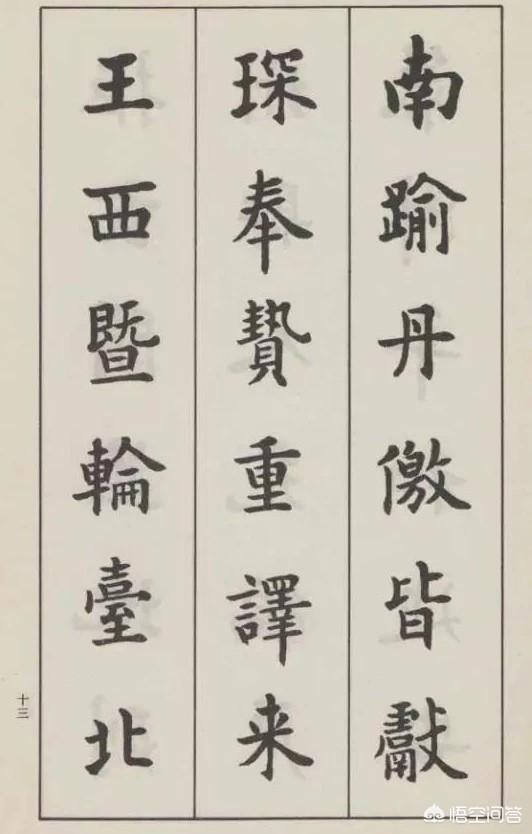 南踰丹儌皆獻
琛奉贄重譯来
王西暨輪臺北
十三
悟空问答